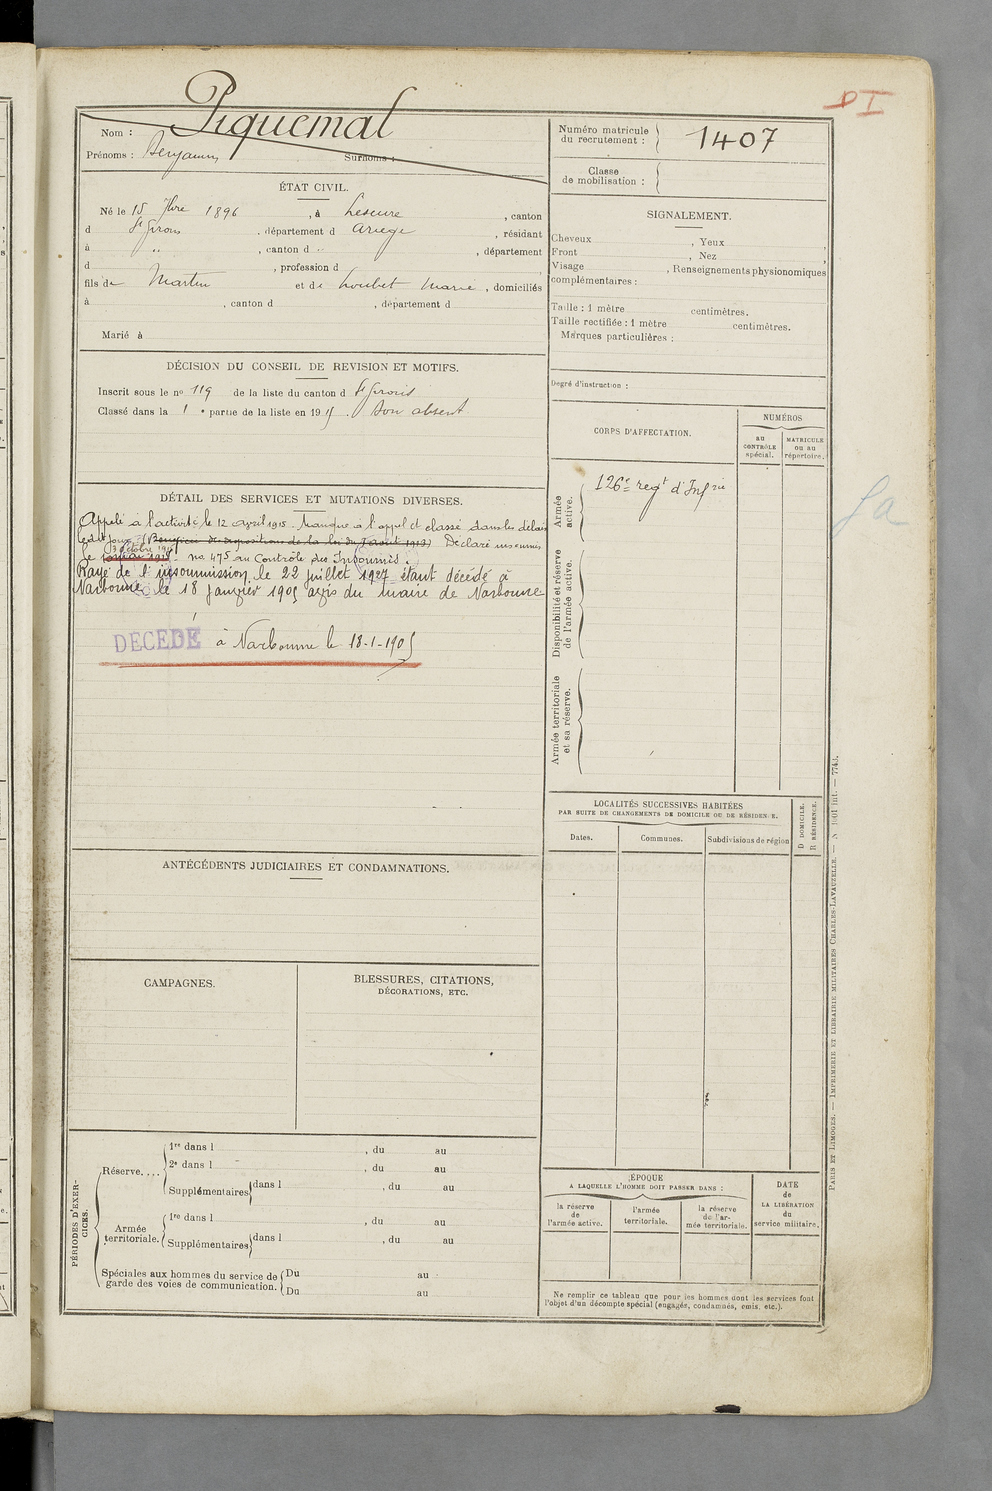 DI
Piquemal
Nom :
Prénoms : Benjamin Surnoms :
Numéro matricule du recrutement : 1407
Classe de mobilisation :
ÉTAT CIVIL.
Né le 15 7bre 1896, à Lescure, canton
d St Girons, département d Ariège, résidant
à ,, , canton d ,, , département
d , profession d ,
fils de Martin et de Loubet Marie, domiciliés
à , canton d , département d
Marié à
SIGNALEMENT.
Cheveux , Yeux ,
Front , Nez ,
Visage , Renseignements physionomiques
complémentaires :
Taille : 1 mètre centimètres.
Taille rectifiée : 1 mètre centimètres.
Marques particulières :
Degré d'instruction :
DÉCISION DU CONSEIL DE REVISION ET MOTIFS.
Inscrit sous le no 119 de la liste du canton d St Girons
Classé dans la 1 e partie de la liste en 1915. Bon absent
CORPS D'AFFECTATION.
NUMÉROS
au CONTRÔLE spécial.
MATRICULE ou au répertoire.
Armée active.
126e regt d'Infrie
Disponibilité et réserve de l'armée active.
Armée territoriale et sa réserve.
La
DÉTAIL DES SERVICES ET MUTATIONS DIVERSES.
Appelé à l'activité le 12 avril 1915. Manque à l'appel et classé dans les délais
Déclaré insoumis
le no 475 au Contrôle des Insoumis.
Rayé de l'insoumission le 23 juillet 1927 étant décédé à
Narbonne le 18 janvier 1905 avis du maire de Narbonne
DECEDE à Narbonne le 18-1-1905
LOCALITÉS SUCCESSIVES HABITÉES
PAR SUITE DE CHANGEMENTS DE DOMICILE OU DE RÉSIDENCE.
Dates.
Communes.
Subdivisions de région
D DOMICILE.
R RÉSIDENCE.
ANTÉCÉDENTS JUDICIAIRES ET CONDAMNATIONS.
CAMPAGNES.
BLESSURES, CITATIONS,
DÉCORATIONS, ETC.
PÉRIODES D'EXERCICES.
Réserve....
1re dans l , du au
2e dans l , du au
Supplémentaires dans l , du au
Armée territoriale.
1re dans l , du au
Supplémentaires dans l , du au
Spéciales aux hommes du service de garde des voies de communication.
Du au
Du au
ÉPOQUE
A LAQUELLE L'HOMME DOIT PASSER DANS :
la réserve de l'armée active.
l'armée territoriale.
la réserve de l'armée territoriale.
DATE de LA LIBÉRATION du service militaire.
Ne remplir ce tableau que pour les hommes dont les services font
l'objet d'un décompte spécial (engagés, condamnés, omis, etc.).
PARIS ET LIMOGES. — IMPRIMERIE ET LIBRAIRIE MILITAIRES CHARLES-LAVAUZELLE.